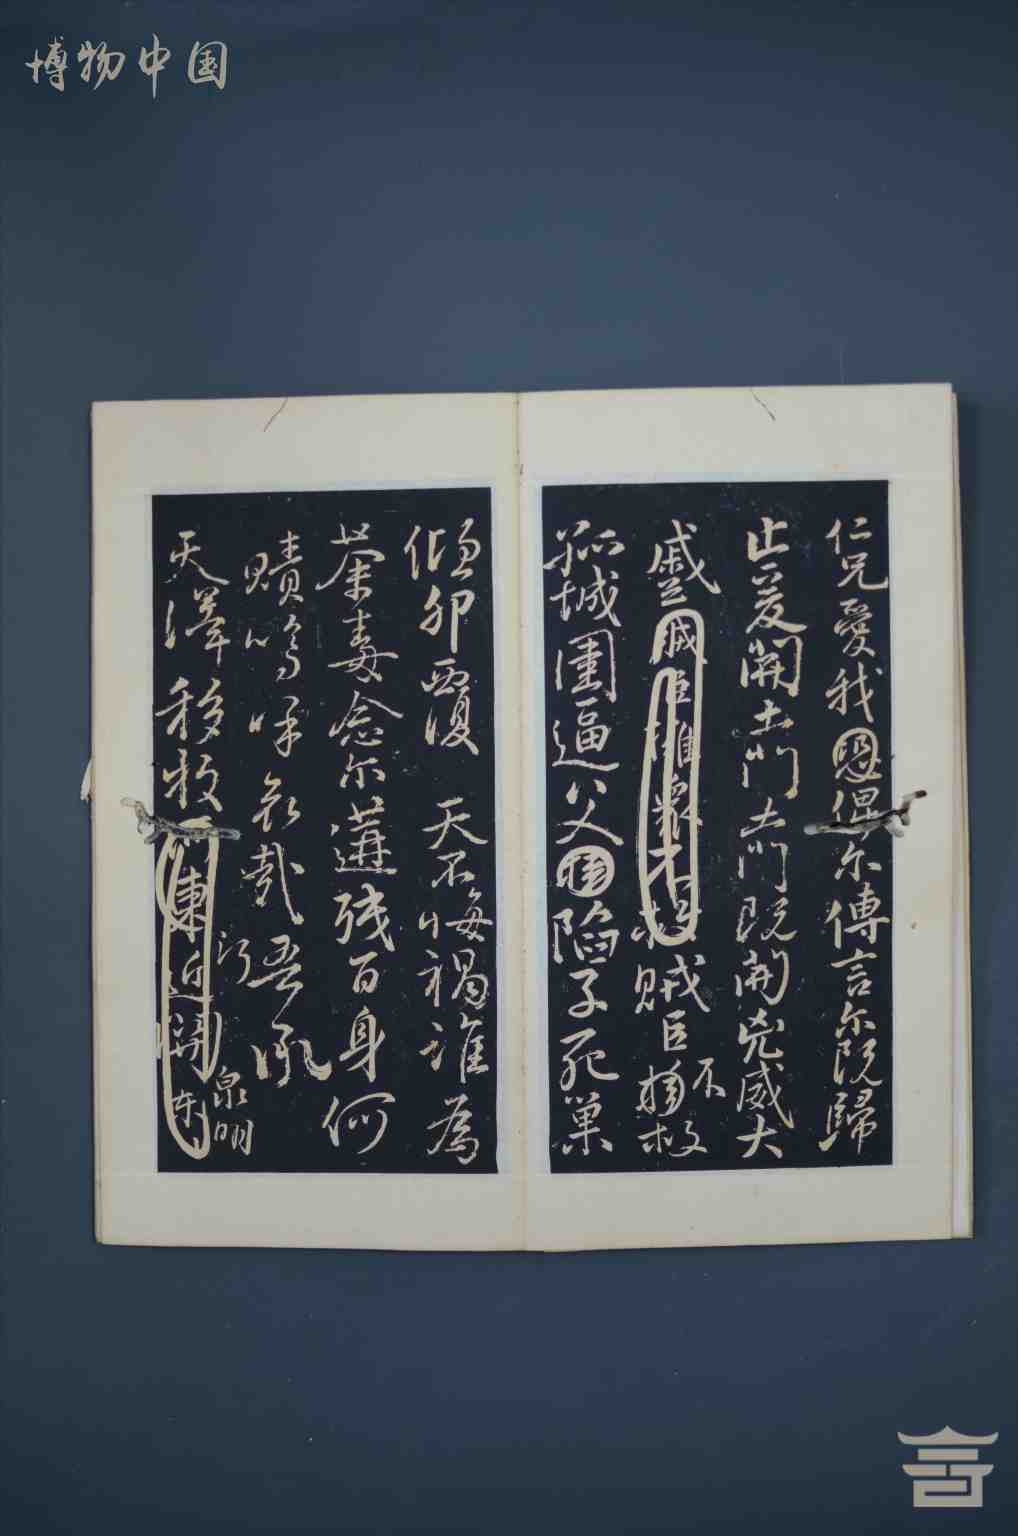 博物中国
仁兄愛我恐俾尔傳言尔既歸
止爰開土門土門既開兇威大
蹙賊臣擁衆不救賊臣不擁救
孤城圍逼父擒陷子死巢
傾卵覆 天不悔禍誰為
荼毒念尔遘殘百身何
贖嗚呼哀哉吾承
天澤移牧河東近河關東
泉明